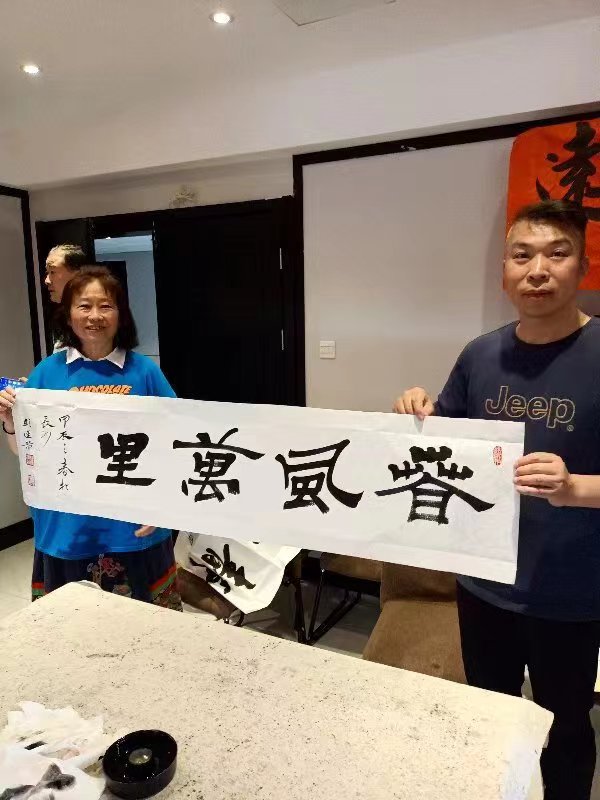 春風萬里
甲辰之春於
長沙
CHOCOLATE
Jeep